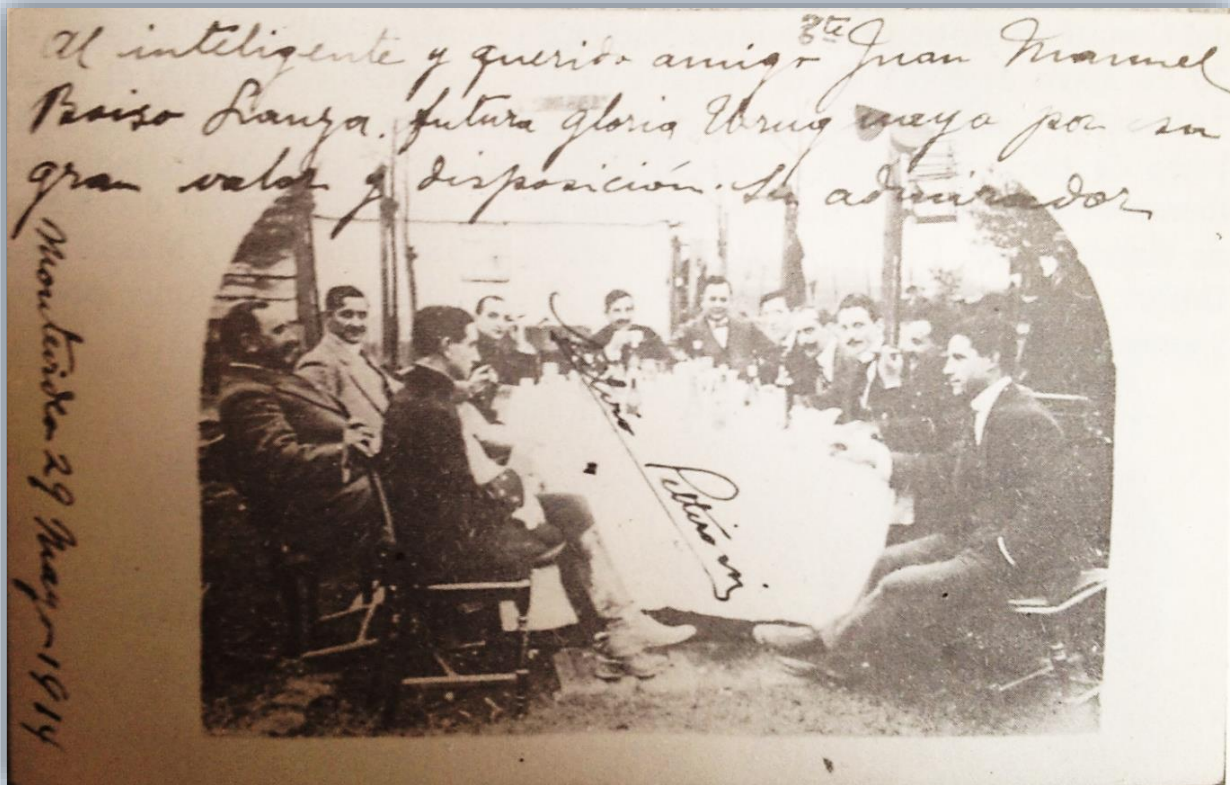 Al inteligente y querido amigo Tte Juan Manuel
Boiso Lanza. futura gloria Uruguaya por su
gran valor y disposición. Su admirador
Montevideo 29 Mayo-1914